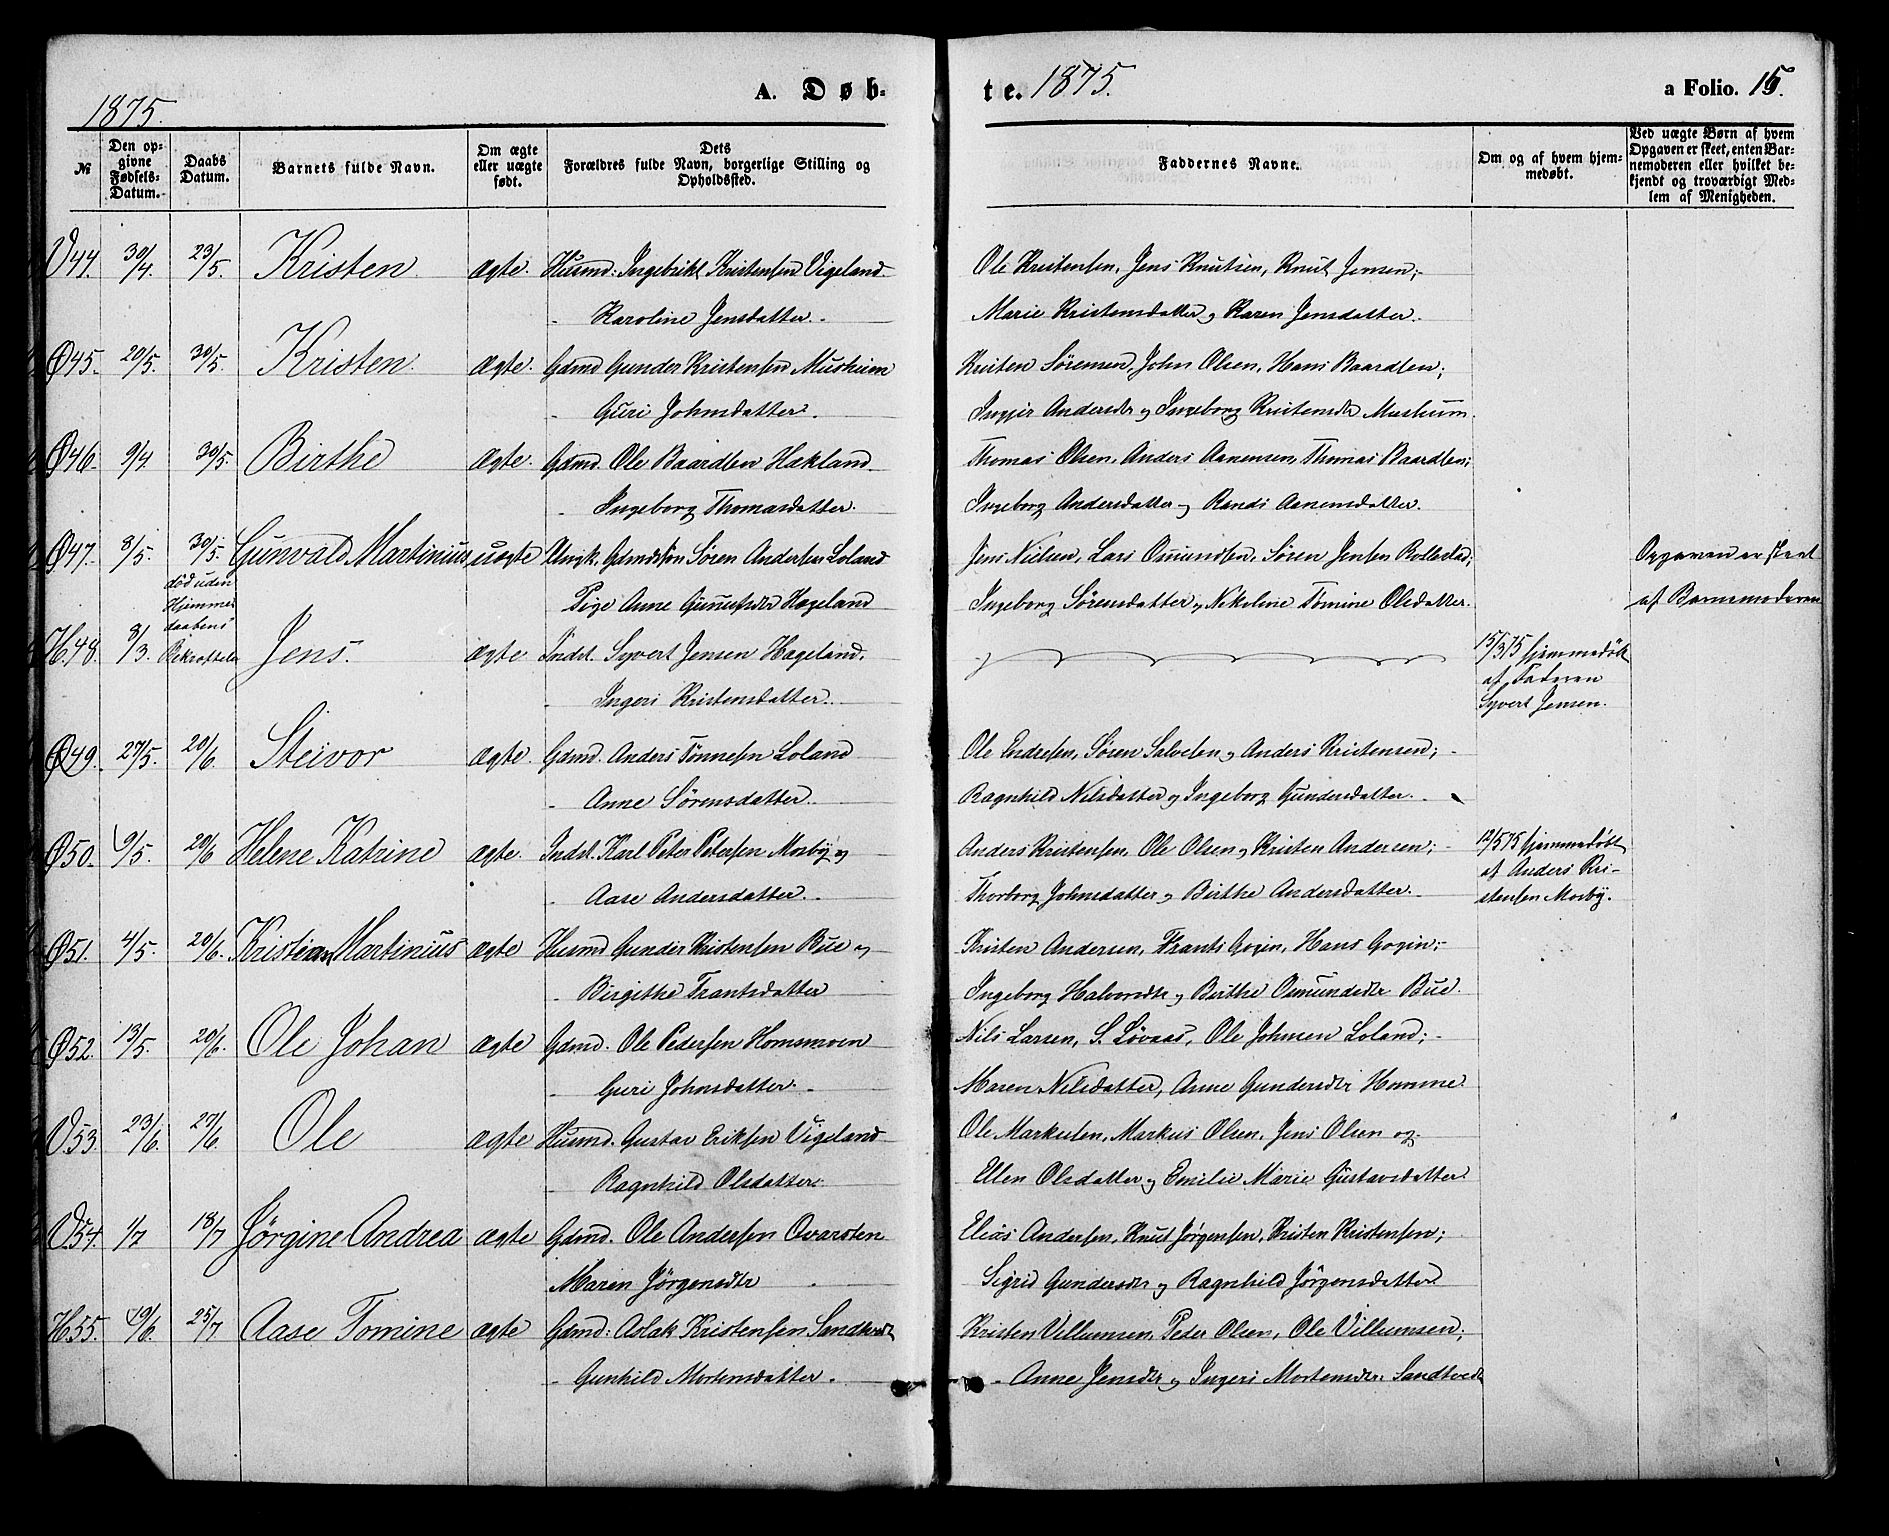 1875.
A. Døb-
te. 1875.
a Folio. 15.
№
Den op-
givne
Fødsels-
Datum.
Daabs
Datum.
Barnets fulde Navn.
Om ægte
eller uægte
født.
Dets
Forældres fulde Navn, borgerlige Stilling og
Opholdssted.
Faddernes Navne.
Om og af hvem hjem-
medøbt.
Ved uægte Børn af hvem
Opgaven er skeet, enten Bar-
nemoderen eller hvilket be-
kjendt og troværdigt Med-
lem af Menigheden.
V44. 30/4. 23/5. Kristen ægte. Husmd: Ingebrikt Kristensen Vigeland Ole Kristensen, Jens Knutsen, Knut Jensen;
- Karoline Jensdatter. Marie Kristensdatter og Karen Jensdatter.
Ø45. 20/5. 30/5. Kristen ægte. Gdmd Gunder Kristensen Mushum Kristen Sørensen, John Olsen, Hans Baardsen;
- Guri Johnsdatter. Ingjer Andersdr og Ingeborg Kristensdr Mushum.
Ø46. 9/4. 30/5. Birthe ægte. Gdmd. Ole Baardsen Hækland Thomas Olsen, Anders Aanensen, Thomas Baardsen;
- Ingeborg Thomasdatter. Ingeborg Andersdatter og Randi Aanensdatter.
Ø47. 8/5. 30/5. Gunvald Martinius uægte Ungk. Gdmdssøn Søren Andersen Loland Jens Nielsen, Lars Omundsen, Søren Jensen Rollestad; Opgaven er skeet
Pige Anne Gunufsdr Hægeland Ingeborg Sørensdatter og Nikoline Tomine Olsdatter. af Barnemoderen
død uden
Hjemme-
daabens
Bekræftelse
H.48. 8/3. Jens. ægte Indst. Syvert Jensen Hægeland. 15/3 75 hjemmedøbt
- Ingeri Kristensdatter. af Faderen
Syvert Jensen.
Ø49. 27/5. 20/6. Steivor ægte. Gdmd. Anders Tønnesen Loland Ole Endresen, Søren Salvesen og Anders Kristensen;
- Anne Sørensdatter. Ragnhild Nilsdatter og Ingeborg Gundersdatter.
Ø50. 9/5. 20/6 Helene Katrine ægte. Indst. Karl Peter Petersen Mosby og Anders Kristensen, Ole Olsen og Kristen Andersen; 12/5 75 hjemmedøbt
- Aase Andersdatter. Thorborg Johnsdatter og Birthe Andersdatter. af Anders Kri-
stensen Mosby.
Ø51. 4/5. 20/6. Kristian Martinius ægte Husmd Gunder Kristensen Bue og Kristen Andersen, Frants Gogin, Hans Gogin;
- Birgithe Frantsdatter Ingeborg Halvorsdtr og Birthe Omundsdr Bue.
Ø52. 13/5. 20/6. Ole Johan ægte Gdmd. Ole Pedersen Homsmoen Nils Larsen, S. Løvaas, Ole Johnsen Loland;
- Guri Johnsdatter. Maren Nilsdatter, Anne Gundersdtr Homme.
V.53. 23/6. 27/6. Ole ægte Husmd. Gustav Eriksen Vigeland Ole Markusen, Markus Olsen, Jens Olsen og
- Ragnhild Olsdatter. Ellen Olsdatter og Emilie Marie Gustavsdatter
V.54. 1/7 18/7 Jørgine Andrea ægte Gdmd. Ole Andersen Ovarsten Elias Andersen, Knut Jørgensen, Kristen Kristensen;
Maren Jørgensdtr Sigrid Gundersdtr og Ragnhild Jørgensdatter
H.55. 19/6. 25/7 Aase Tomine ægte Gdmd: Aslak Kristensen Sandtvedt Kristen Villumsen, Peder Olsen, Ole Villumsen;
- Gunhild Mortensdatter. - Anne Jensdtr og Ingeri Mortensdtr Sandtvedt